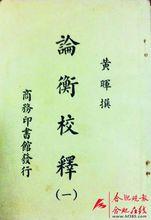 黄暉撰
論衡校釋
(一)
商務印書館發行
合肥晚报
合肥在线
hf365.com